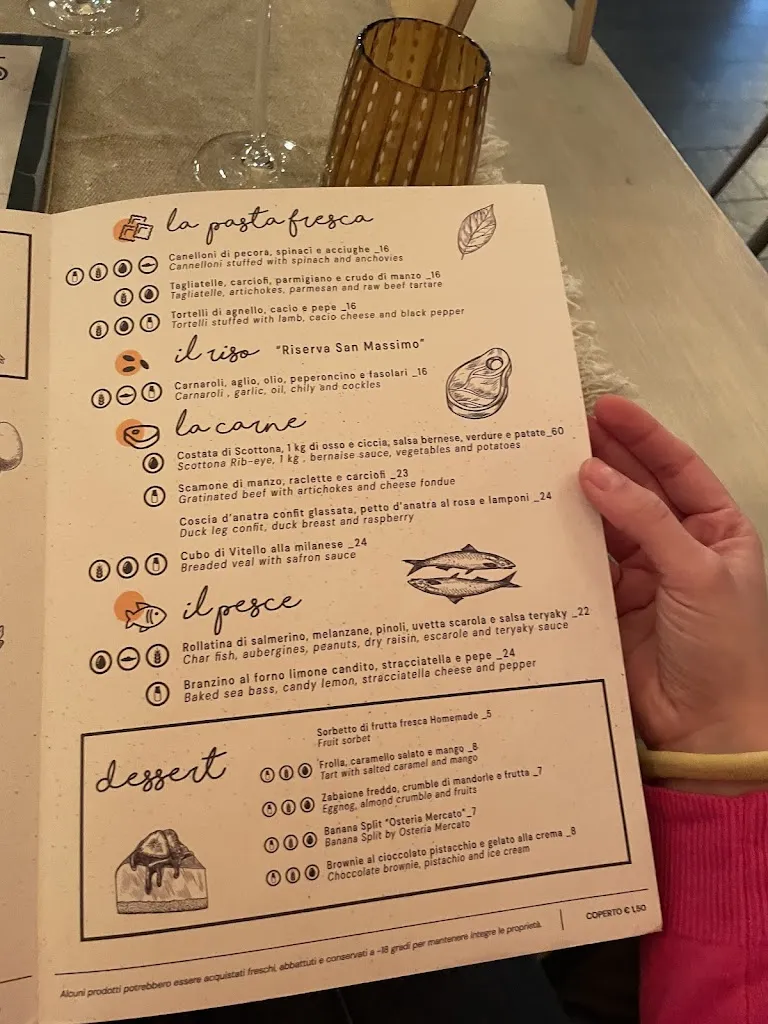 la pasta fresca
Canelloni di pecora, spinaci e acciughe _16
Cannelloni stuffed with spinach and anchovies
Tagliatelle, carciofi, parmigiano e crudo di manzo _16
Tagliatelle, artichokes, parmesan and raw beef tartare
Tortelli di agnello, cacio e pepe _16
Tortelli stuffed with lamb, cacio cheese and black pepper
il riso "Riserva San Massimo"
Carnaroli, aglio, olio, peperoncino e fasolari _16
Carnaroli , garlic, oil, chily and cockles
la carne
Costata di Scottona, 1 kg di osso e ciccia, salsa bernese, verdure e patate_60
Scottona Rib-eye, 1 kg , bernaise sauce, vegetables and potatoes
Scamone di manzo, raclette e carciofi _23
Gratinated beef with artichokes and cheese fondue
Coscia d'anatra confit glassata, petto d'anatra al rosa e lamponi _24
Duck leg confit, duck breast and raspberry
Cubo di Vitello alla milanese _24
Breaded veal with safron sauce
il pesce
Rollatina di salmerino, melanzane, pinoli, uvetta scarola e salsa teryaky _22
Char fish, aubergines, peanuts, dry raisin, escarole and teryaky sauce
Branzino al forno limone candito, stracciatella e pepe _24
Baked sea bass, candy lemon, stracciatella cheese and pepper
dessert
Sorbetto di frutta fresca Homemade _5
Fruit sorbet
Frolla, caramello salato e mango _8
Tart with salted caramel and mango
Zabaione freddo, crumble di mandorle e frutta _7
Eggnog, almond crumble and fruits
Banana Split "Osteria Mercato"_7
Banana Split by Osteria Mercato
Brownie al cioccolato pistacchio e gelato alla crema _8
Choccolate brownie, pistachio and ice cream
Alcuni prodotti potrebbero essere acquistati freschi, abbattuti e conservati a -18 gradi per mantenere integre le proprietà.
COPERTO € 1,50